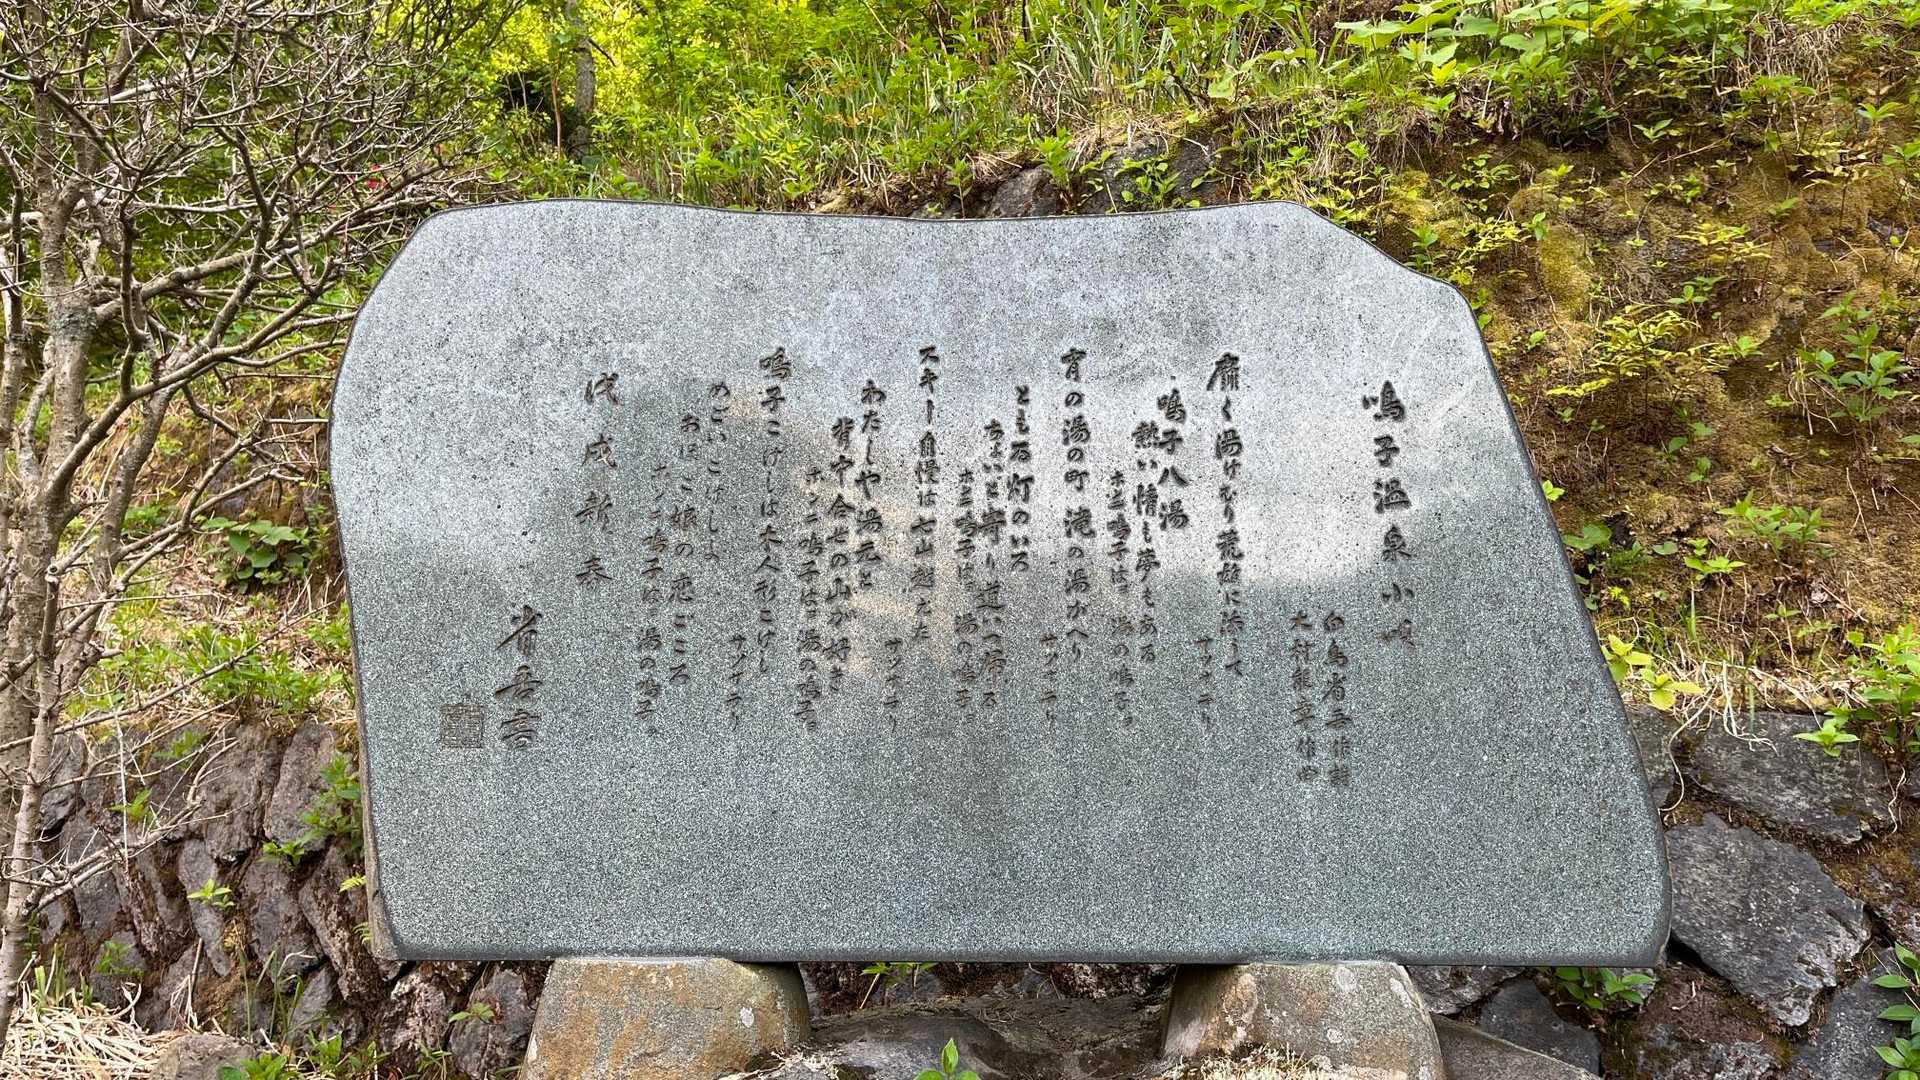 鳴子温泉小唄
白鳥省吾 作詩
大村能章 作曲
靡く湯けむり荒雄に添うて
サノナァリ
鳴子八湯
熱い情も夢もある
ホンニ鳴子は 湯の鳴子
宵の湯の町 滝の湯がへり
サノナァリ
ともる灯のいろ
ちょいと寄り道いつ帰る
ホンニ鳴子は 湯の鳴子
スキー自慢は七山越えた
サノナァリ
わたしや湯元と
背中合せの山が好き
ホンニ鳴子は 湯の鳴子
鳴子こけしは木人形こけし
サノナァリ
めごいこけしよ
おぼこ娘の恋ごころ
ホンニ鳴子は 湯の鳴子
戊戌新春
省吾書